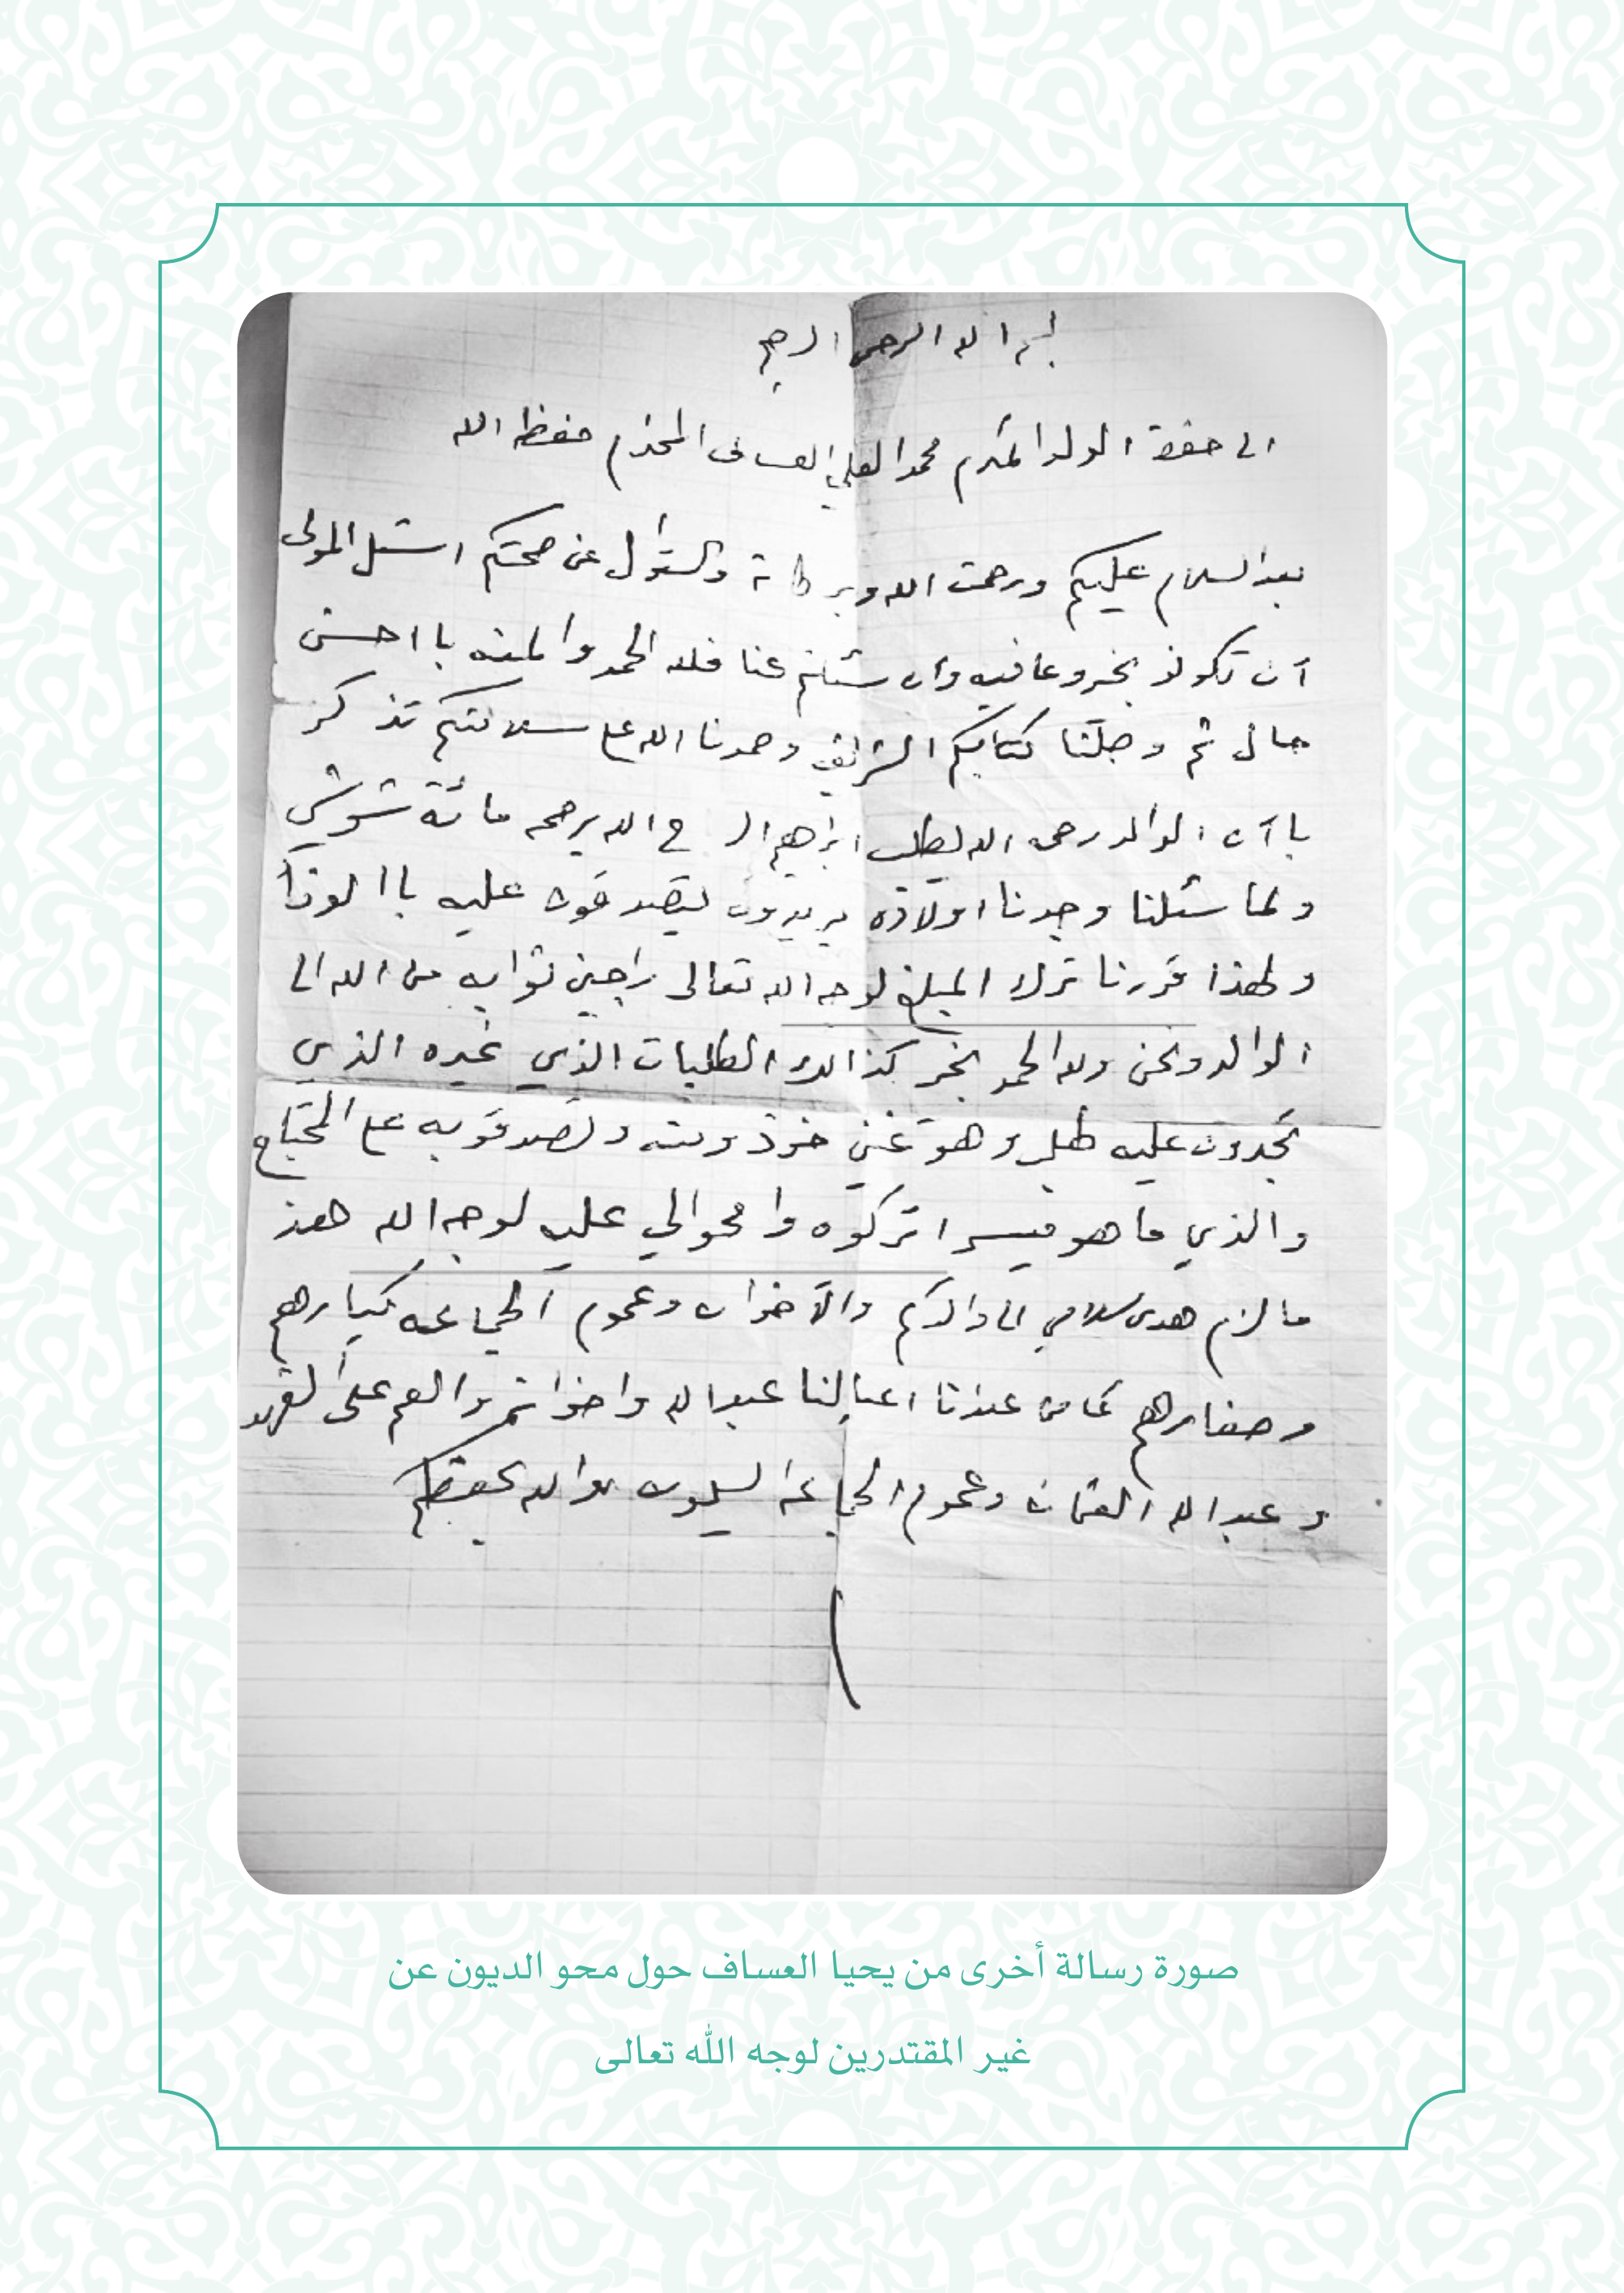 بسم الله الرحمن الرحيم
الى حضرة الولد المكرم محمد العلي العساف المحترم حفظه الله
بعد السلام عليكم ورحمت الله وبركاته والسئوال عن صحتكم اسئل المولى
آن تكونو بخير وعافيه وان سئلتم عنا فلله الحمد والمنه بااحسن
حال ثم وصلنا كتابكم الشريف وحمدنا الله على سلامتكم تذكر
باآن الوالد رحمه الله يطلب ابراهيم الله يرحمه مائة
ولما سئلنا وجدنا اولاده يريدون يتصدقون عليه
ولهذا قررنا ترك المبلغ لوجه الله تعالى راجين ثوابه من الله الى
الوالد ونحن ولله الحمد بخير كذالك الطلبات الذي غيره الذي
تجدون عليه طلب وهو غني خوذو منه وتصدقو به على المحتاج
والذي ما هو ميسر اتركوه وامحو الي عليه لوجه الله هذ
ما لزم هدى سلامي الى والدكم والآخوان وعموم الجماعه كبارهم
وصغارهم كما من عندنا اعيالنا عبدالله واخوانه والعم علي الفهد
وعبدالله العثمان وعموم الجماعة يسلمون والله يحفظكم
صورة رسالة أخرى من يحيا العساف حول محو الديون عن
غير المقتدرين لوجه الله تعالى